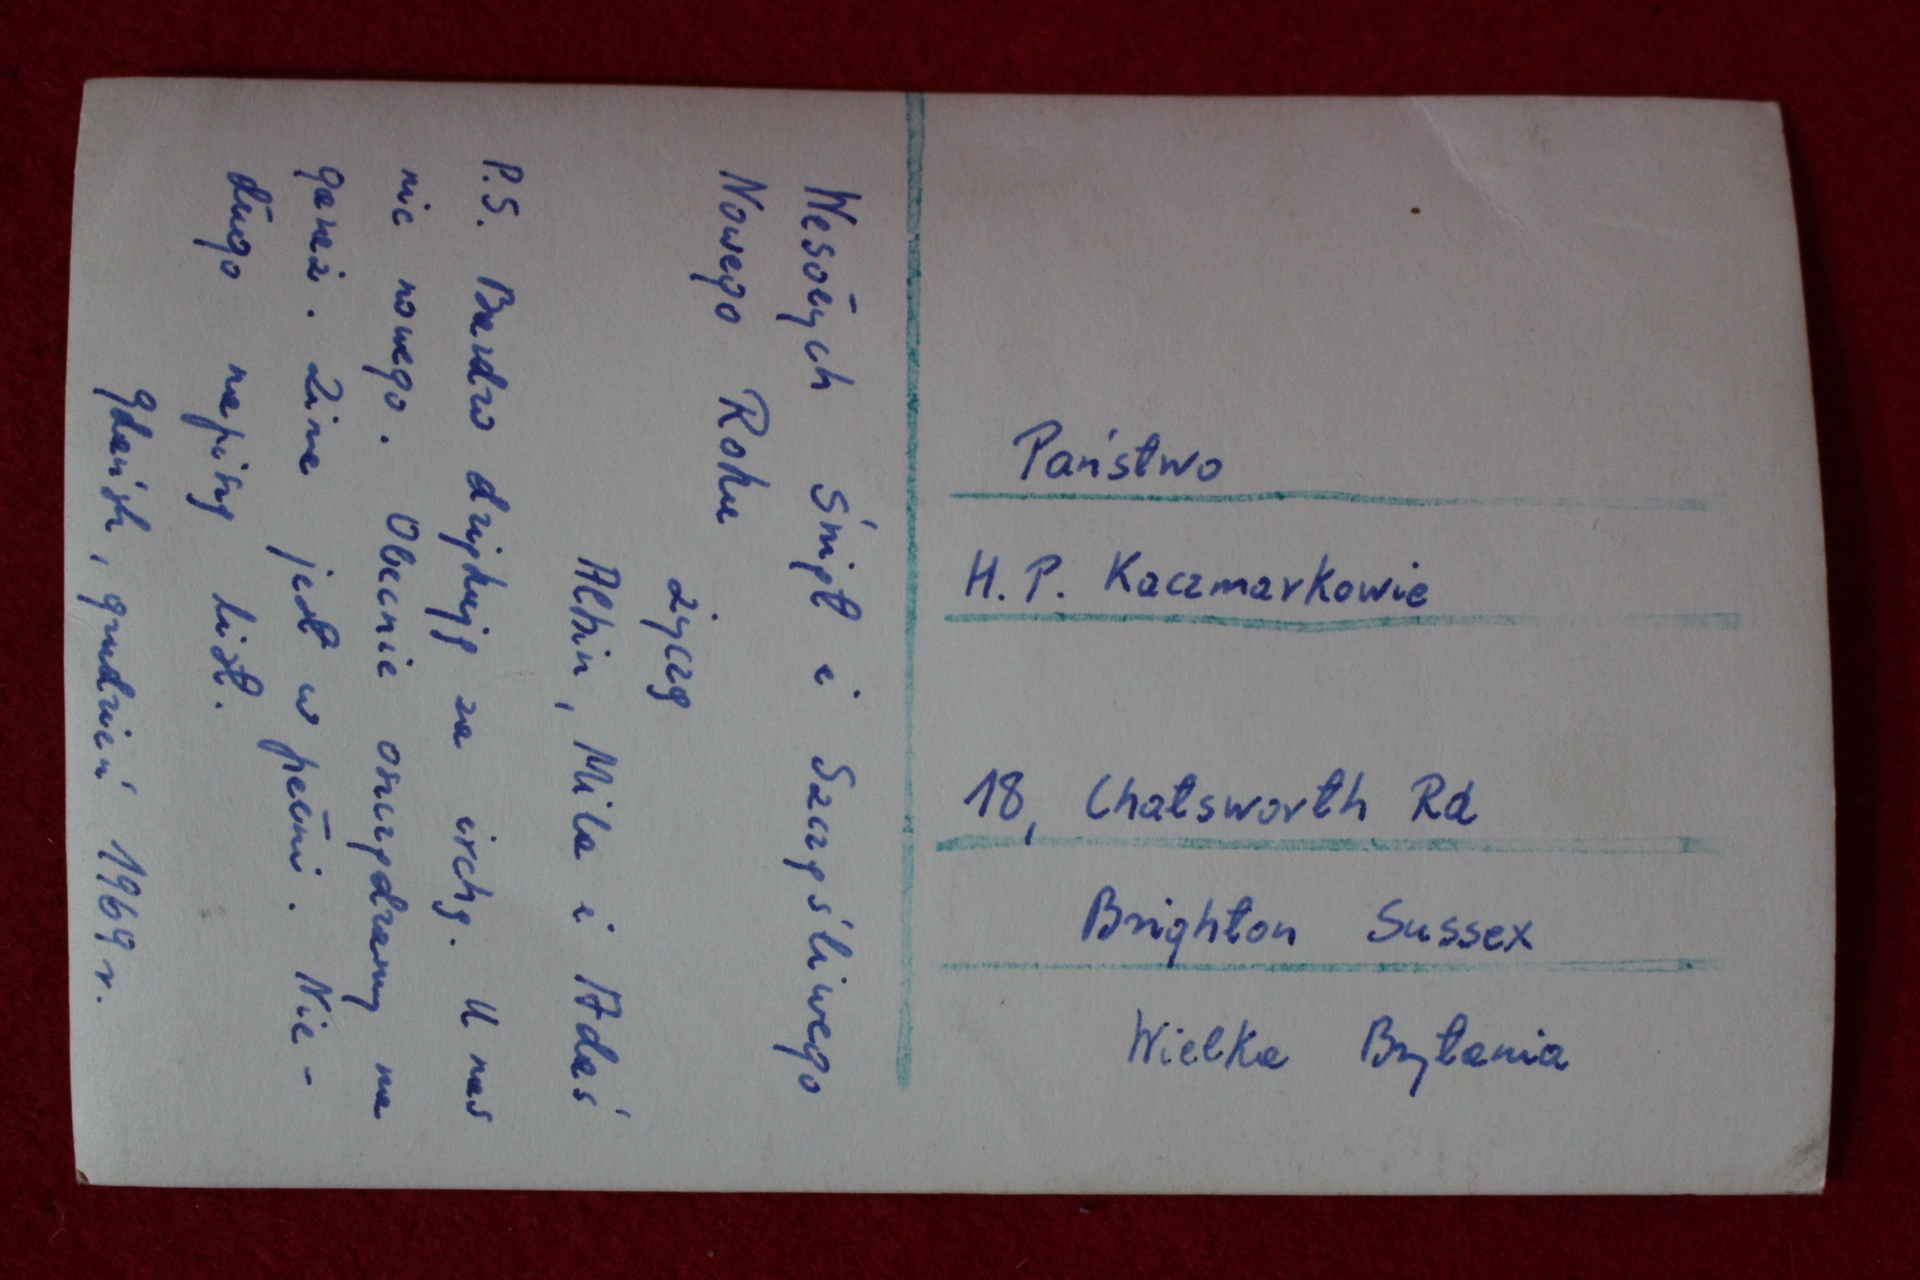 Wesołych Świąt i Szczęśliwego
Nowego Roku
życzą
Albin, Mila i Adaś
P.S. Bardzo dziękuję za irchę. U nas
nic nowego. Obecnie oszczędzamy na
garaż. Zima jest w pełni. Nie-
długo napiszę list.
Gdańsk, grudzień 1969 r.
Państwo
H. P. Kaczmarkowie
18, Chatsworth Rd
Brighton Sussex
Wielka Brytania